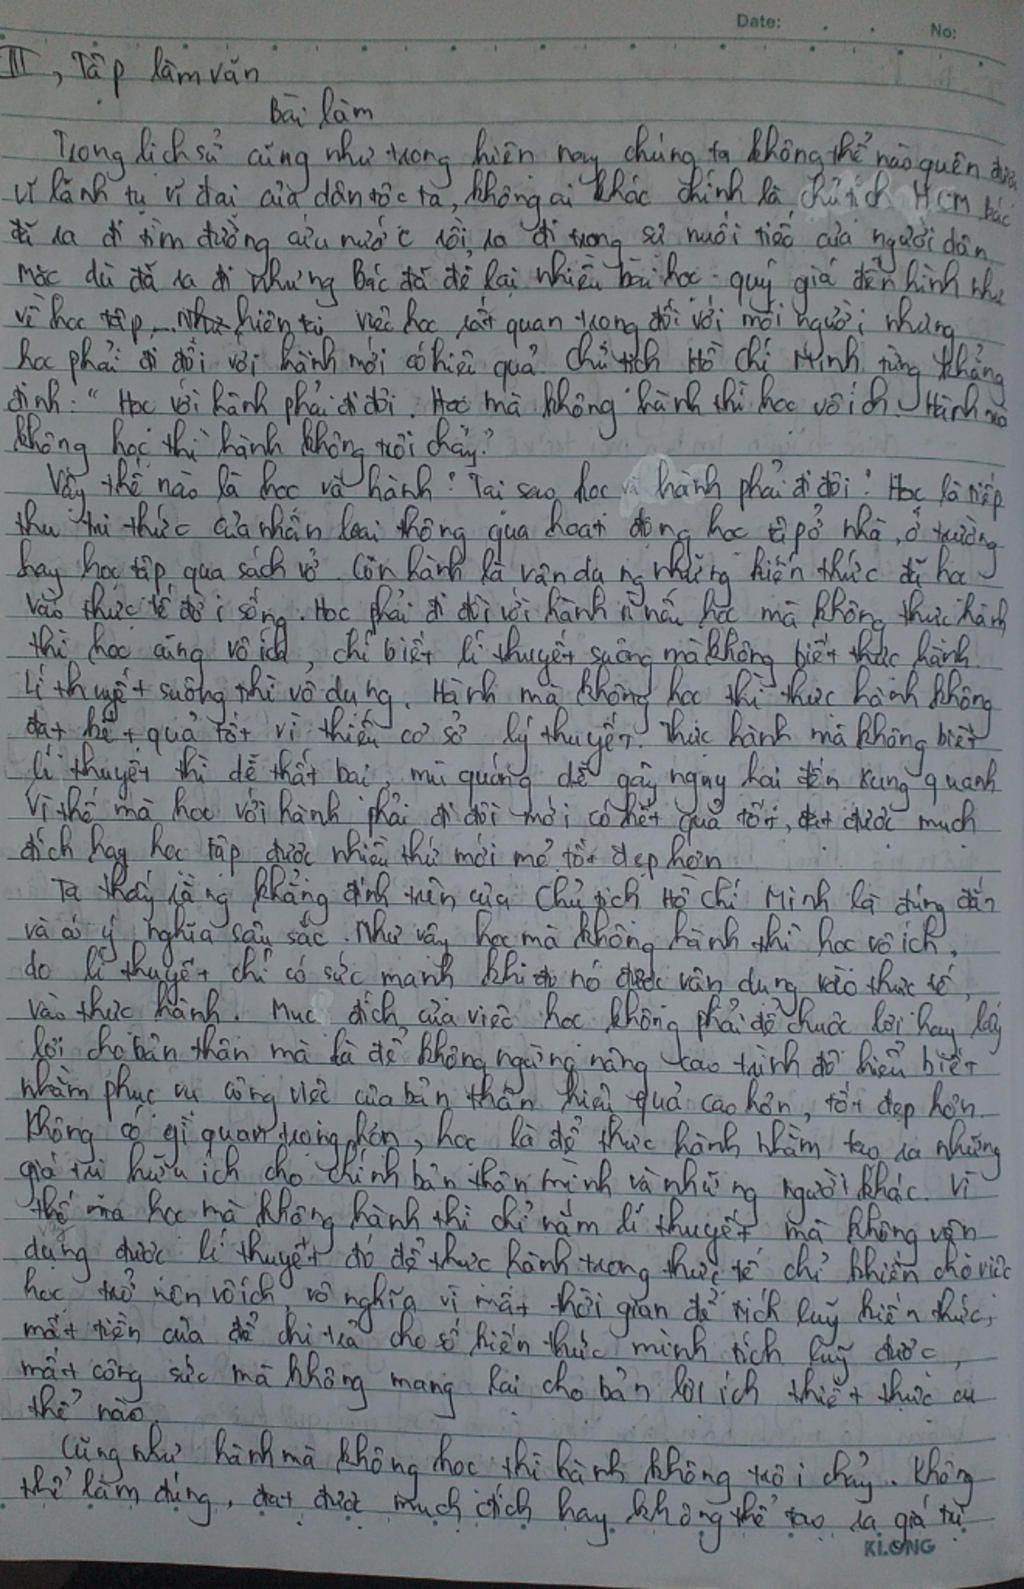 Date: No:
III, Tập làm văn
Bài làm
Trong lịch sử cũng như trong hiện nay chúng ta không thể nào quên được
vị lãnh tụ vĩ đại của dân tộc ta, không ai khác chính là chủ tịch HCM bác
đã ra đi tìm đường cứu nước rồi ra đi trong sự nuối tiếc của người dân
mặc dù đã ra đi nhưng Bác đã để lại nhiều bài học quý giá đển hình như
về học tập, hiện tại việc học rất quan trong đối với mỗi người nhưng
học phải đi đôi với hành mới có hiệu quả chủ tịch Hồ Chí Minh từng khẳng
định: " Học với hành phải đi đôi. Học mà không hành thì học vô ích. Hành mà
không học thì hành không trôi chảy."
Vậy thế nào là học và hành? Tại sao học và hành phải đi đôi? Học là tiếp
thu tri thức của nhân loại thông qua hoạt động học tập ở nhà, ở trường
hay học tập qua sách vở. Còn hành là vận dụng những kiến thức đã học
vào thực tế đời sống. Học phải đi đôi với hành vì nếu học mà không thực hành
thì học cũng vô ích, chỉ biết lí thuyết suông mà không biết thực hành.
Lí thuyết suông thì vô dụng. Hành mà không học thì thực hành không
đạt kết quả tốt vì thiếu cơ sở lý thuyết. Thực hành mà không biết
lí thuyết thì dễ thất bại, mù quáng dễ gây nguy hại đến xung quanh
vì thế mà học với hành phải đi đôi mới có kết quả tốt, đạt được much
đích hay học tập được nhiều thứ mới mẻ tốt đẹp hơn
Ta thấy rằng khẳng định trên của Chủ tịch Hồ Chí Minh là đúng đắn
và có ý nghĩa sâu sắc. Như vậy học mà không hành thì học vô ích,
do lí thuyết chỉ có sức mạnh khi nó được vận dụng vào thực tế,
vào thực hành. Mục đích của việc học không phải để chuộc lợi hay lấy
lợi cho bản thân mà là để không ngừng nâng cao trình độ hiểu biết
nhằm phục vụ công việc của bản thân hiệu quả cao hơn, tốt đẹp hơn.
Không có gì quan trọng hơn, học là để thực hành nhằm tạo ra những
giá trị hữu ích cho chính bản thân mình và những người khác. Vì
thế mà học mà không hành thì chỉ nắm lí thuyết mà không vận
dụng được lí thuyết đó để thực hành trong thực tế chỉ khiến cho việc
học trở nên vô ích, vô nghĩa vì mất thời gian để tích luỹ kiến thức,
mất tiền của để chi trả cho số kiến thức mình tích luỹ được,
mất công sức mà không mang lại cho bản lợi ích thiết thực cụ
thể nào.
Cũng như hành mà không học thì hành không trôi chảy. Không
thể làm đúng, đạt được much đích hay không thể tạo ra giá trị
KLONG